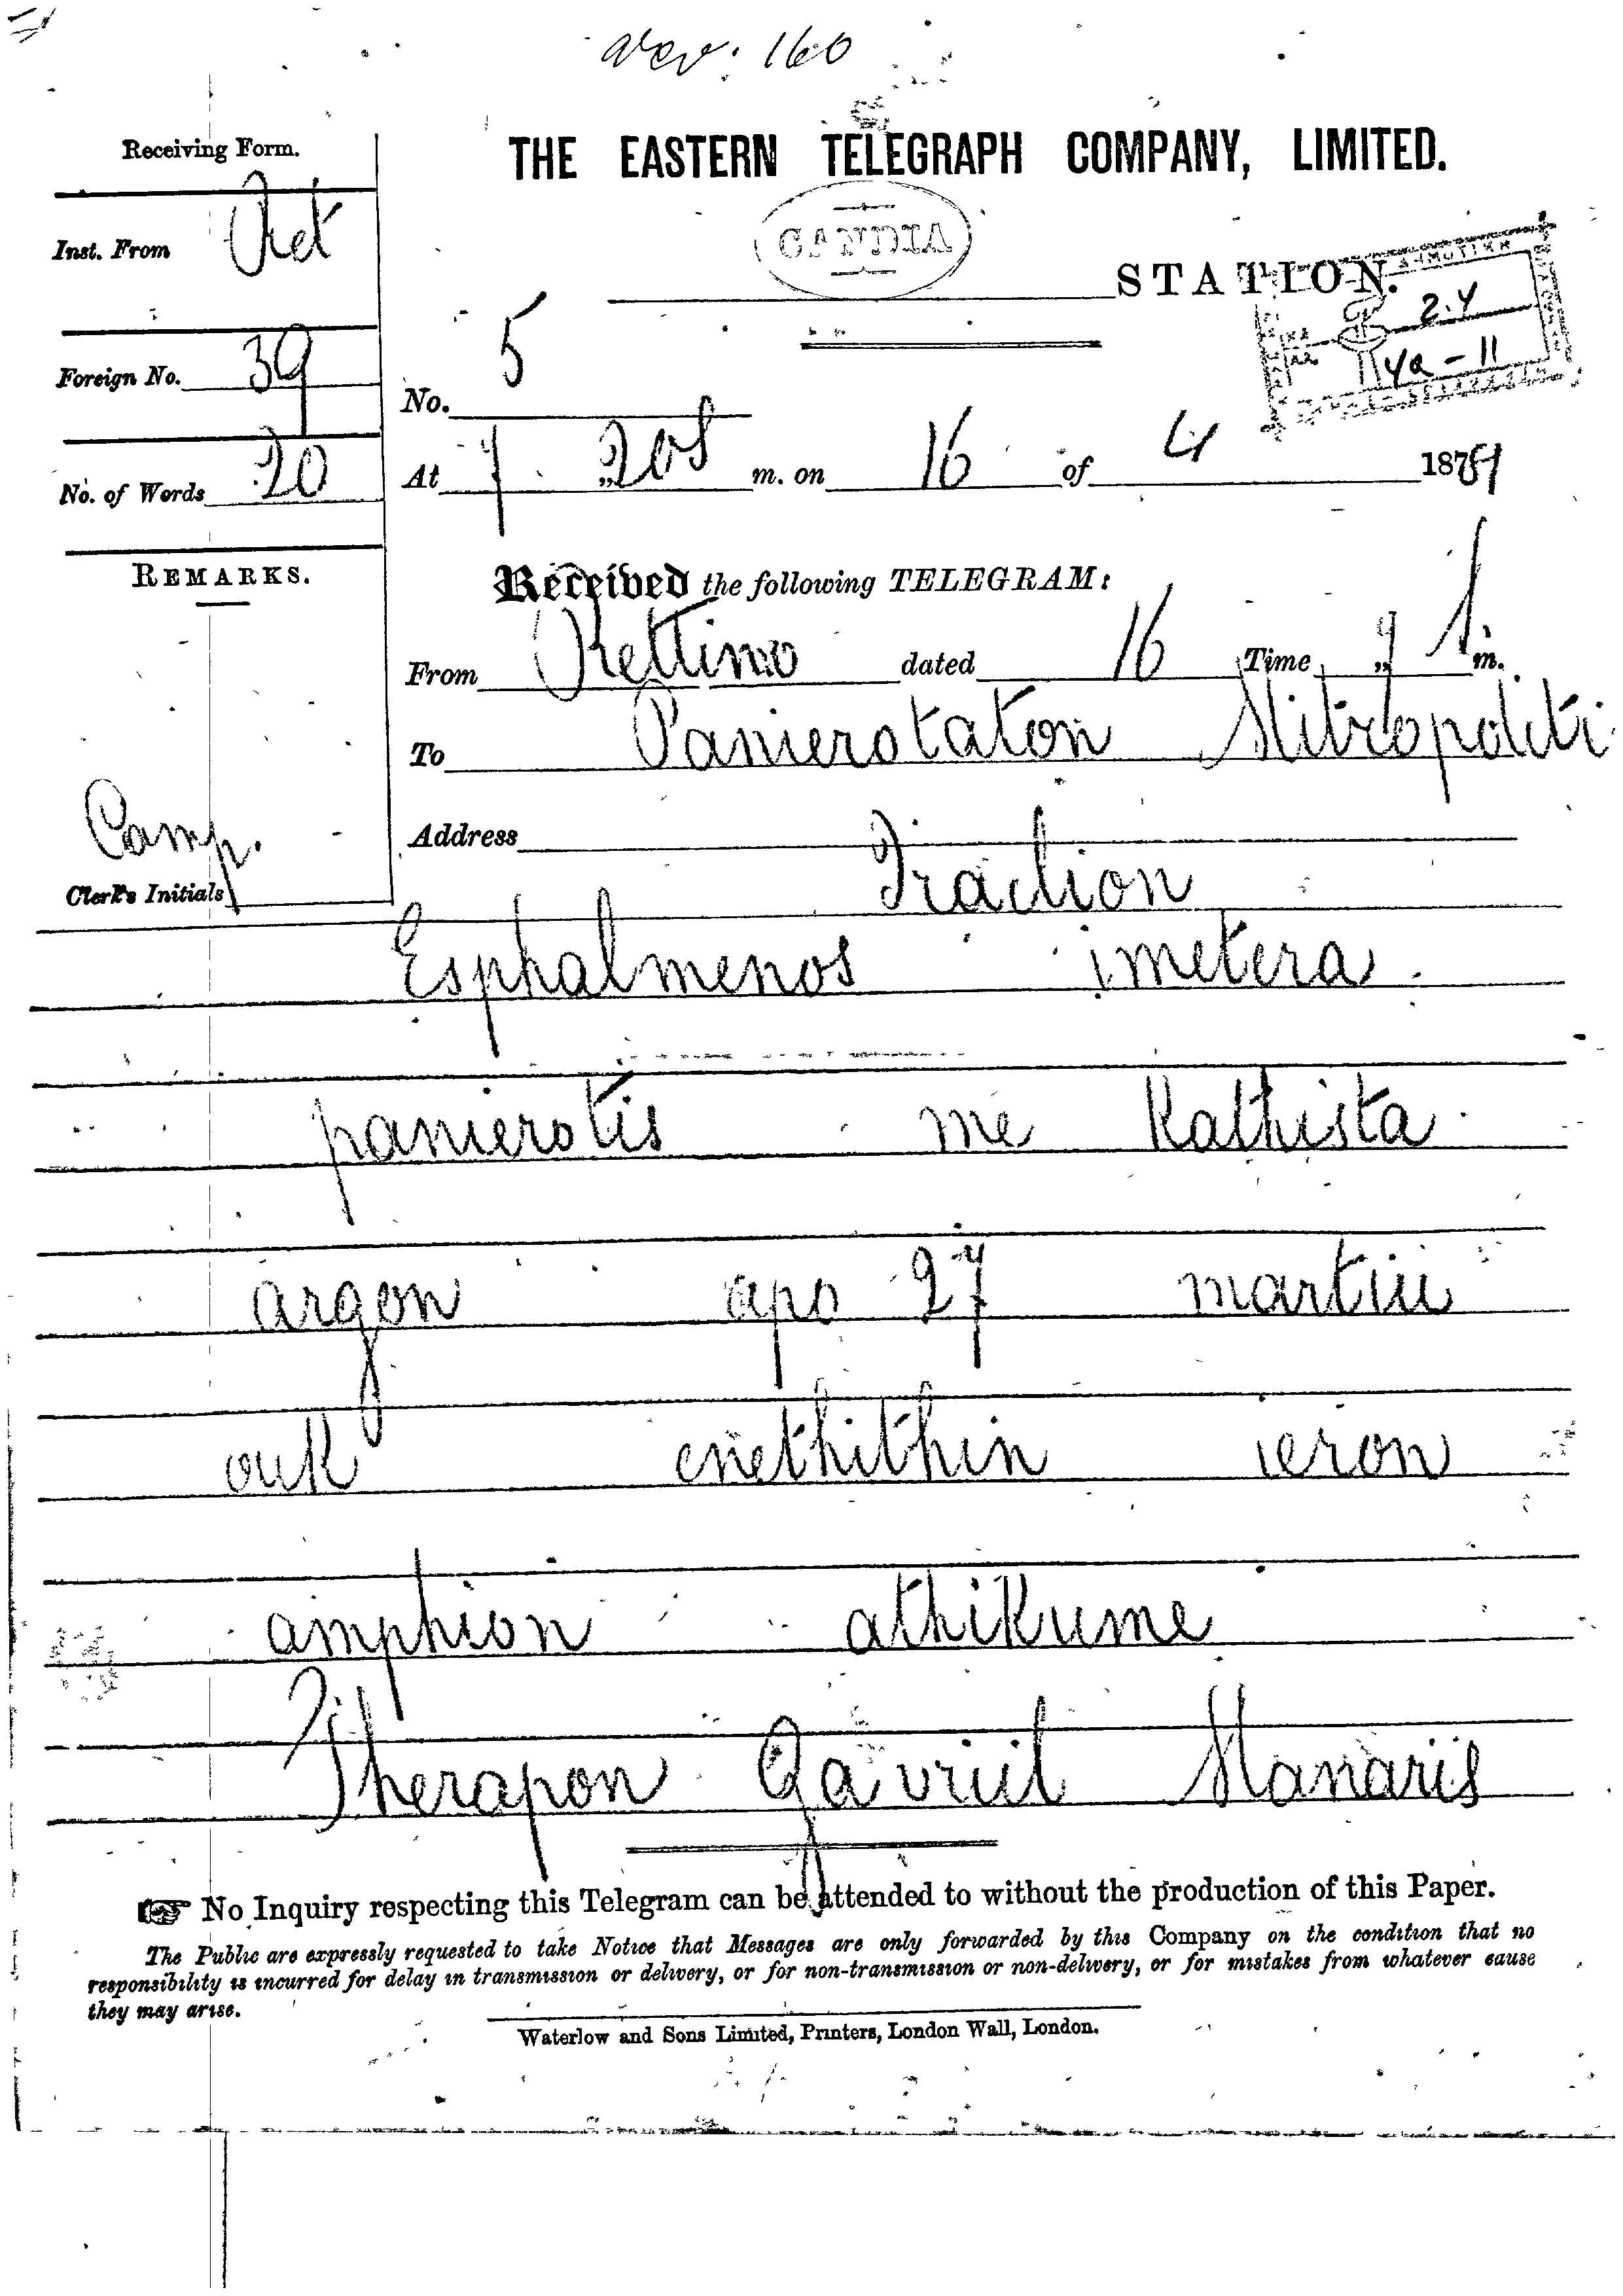 No. 160
Receiving Form.
THE EASTERN TELEGRAPH COMPANY, LIMITED.
Inst. From Ret
CANDIA
STATION.
2.4
4a-11
Foreign No. 39
No. 5
No. of Words 20
At 7 20 S m. on 16 of 4 1881
REMARKS.
Received the following TELEGRAM:
From Rettimo dated 16 Time 9 m.
To Panierotaton Mitropoliti
Camp.
Address
Clerk's Initials
Iraclion
Esphalmenos imetera
panierotis me kathista
argon apo 27 martiu
ouk enethithin ieron
amphion athikume
Therapon Gavriil Manaris
No Inquiry respecting this Telegram can be attended to without the production of this Paper.
The Public are expressly requested to take Notice that Messages are only forwarded by this Company on the condition that no
responsibility is incurred for delay in transmission or delivery, or for non-transmission or non-delivery, or for mistakes from whatever cause
they may arise.
Waterlow and Sons Limited, Printers, London Wall, London.